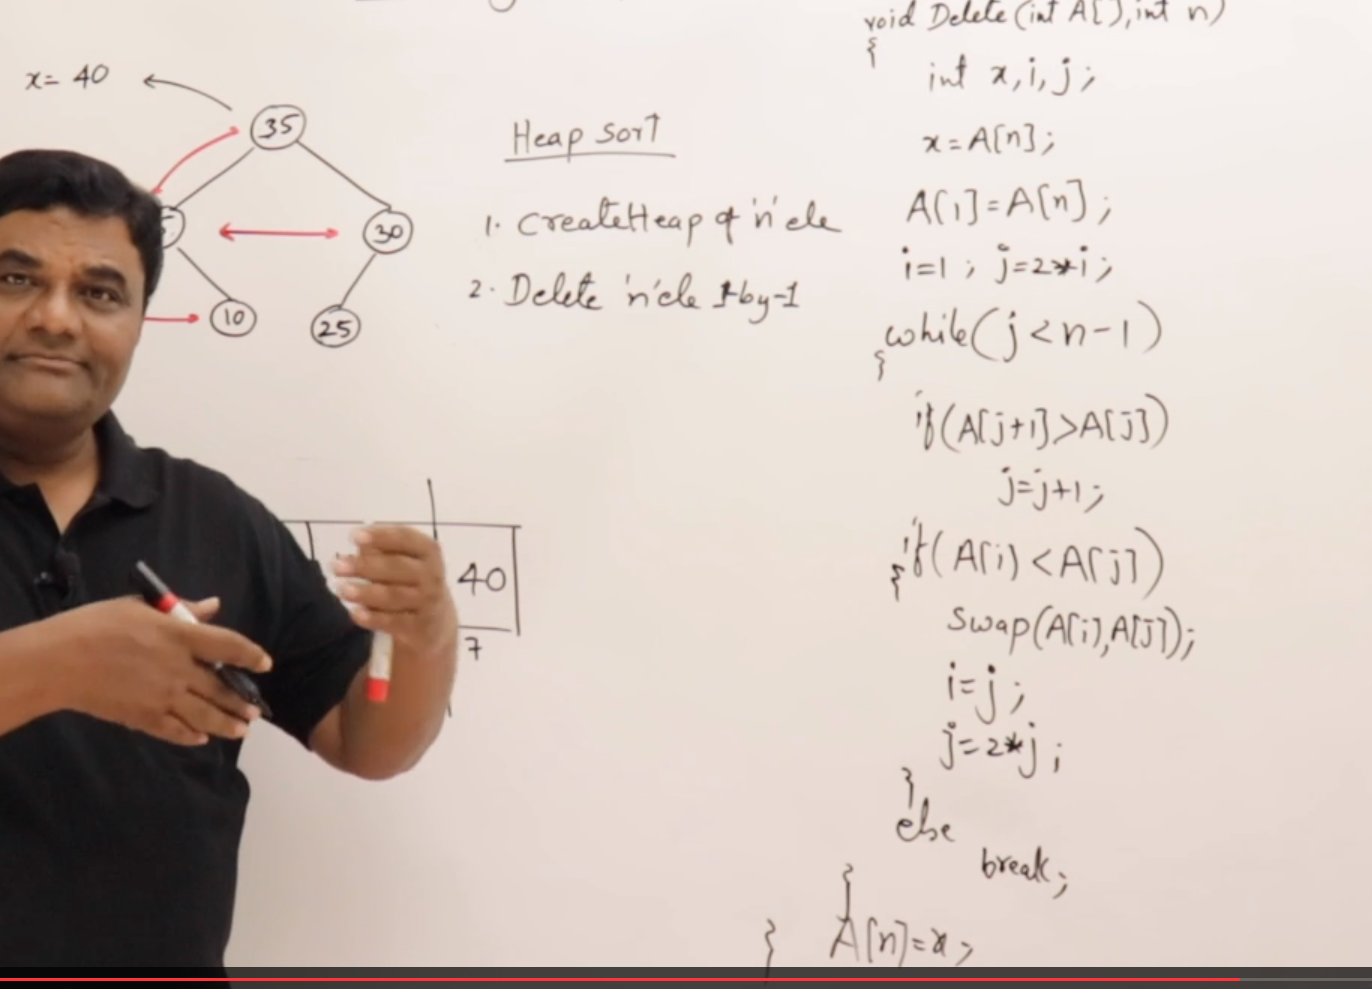 x= 40
35
30
10
25
40
7
Heap Sort
1. CreateHeap of 'n' ele
2. Delete 'n' ele 1-by-1
void Delete(int A[], int n)
{
int x, i, j;
x=A[n];
A[1]=A[n];
i=1; j=2*i;
while(j<n-1)
{
if(A[j+1]>A[j])
j=j+1;
if(A[i]<A[j])
{
swap(A[i],A[j]);
i=j;
j=2*j;
}
else
break;
}
A[n]=x;
}